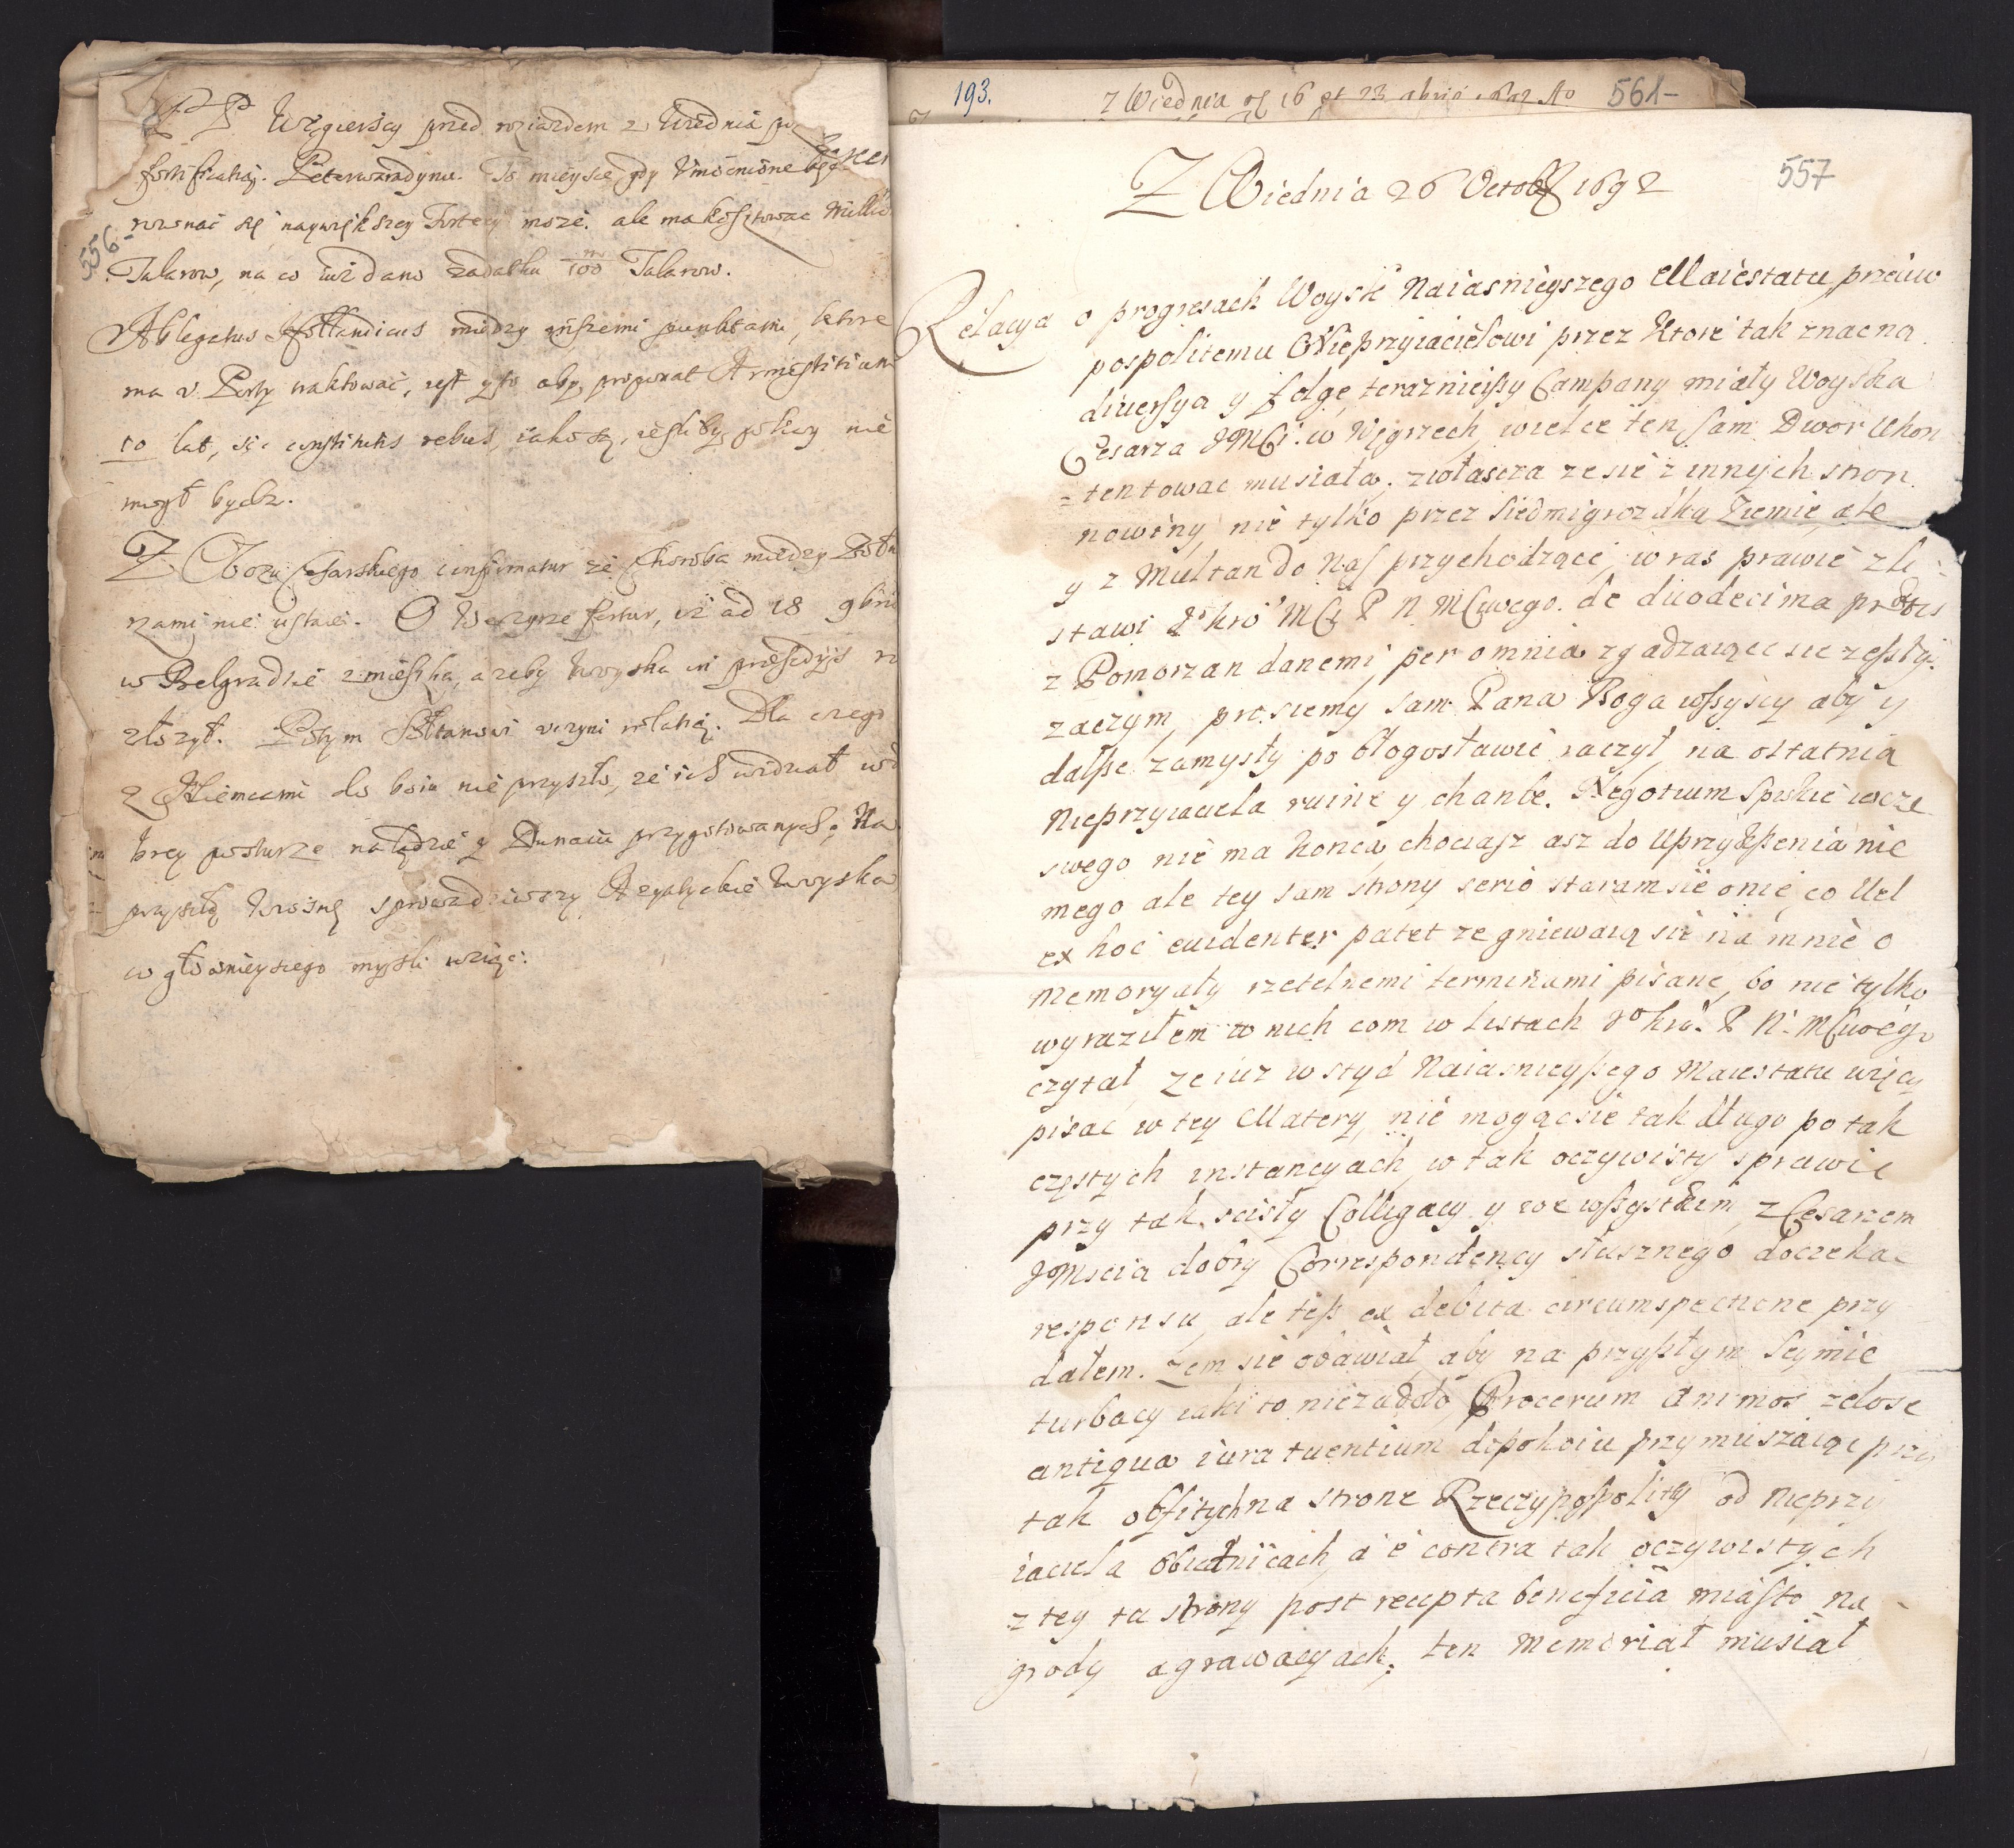 PP Węgierscy przed roziazdem z Wiednia
fortificatią Peterwaradynu. To mieysce gdy Vmocnione będzie
rownać się naywiększey Fortecy może. ale ma kosztowac Millio
556-
Talarow, na co iuż dano zadatku m/100 Talarow.
Ablegatus Hollandicus między inszemi punktami, ktore
ma v Porty traktować, iest y to aby proponat Armistitium
10 lat, sic constitutis rebus, iako są, iesliby pokoy nie
mogł bydz.
Z Obozu Cesarskiego confirmatur że Choroba między Żołn
rzami nie ustaie. O Wezyrze fertur, iż ad 18 9bris
w Belgradzie zmieszka, a żeby woyska in præsidiis
złożył. Potym Sołtanowi vczyni relatią. Dla czego
z Niemcami do boiu nie przyszło, że ich widział w do
brey posturze na lądzie y Dunaiu przygotowanych. Na
przyszłą wiosnę sprowadziwszy Azyatyckie woyska
w głownieyszego myśli wziąć.
193.
Z Wiednia 16 et 23 1692 Ao
561-
557
Z Wiednia 26 Octobr 1692
Relacya o progresach Woysk Naiasnieyszego Maiestatu przeciw
pospolitemu Nieprzyiacielowi przez ktore tak znaczna
diuersya y folge teraznieiszy Campany miały Woyska
Cesarza JMCi. w Węgrzech, wielce ten sam Dwor Ukon
=tentowac musiała, zwłaszcza ze sie z innych stron
nowiny, nie tylko przez Siedmigrodzką Ziemie, ale
y z Multan do nas przychodzące, w ras prawie z li
stami Jo Kro MCi P N MCiwego. de duodecima
z Pomorzan danemi, per omnia zgadzaiące sie zeszły.
zaczym, prosiemy sam Pana Boga wszyscy aby y
dalsze zamysły po błogosławic raczył, na ostatnia
nieprzyiaciela ruine y chanbe. Negotium Spiskie ieszcze
swego nie ma konca, chociasz asz do Uprzykszenia nie
mego ale tey sam strony serio staram sie o nie, co Uel
ex hoc euidenter patet ze gniewaią sie na mnie o
memoryały rzetelnemi terminami pisane, bo nie tylko
wyraziłem w nich com w listach Jo Kro. P N. MCiwego
czytał, ze iuz wstyd Naiasnieyszego Maiestatu więcy
pisac w tey Matery, nie mogąc sie tak długo po tak
częstych instancyach, w tak oczywisty sprawie
przy tak scisły Colligacy y we wszystkim z Cesarzem
JMscia dobry Correspondency słusznego doczekac
responsu, ale tesz ex debita circumspectione przy
dałem. zem sie obawiał, aby na przyszłym Seymie
turbacy iaki to nie zadało, Procerum animos zelose
antiqua iura tuentium do pokoiu przymuszaiąc przy
tak obfitych na strone Rzeczypospolity od nieprzy
iaciela obietnicach, a e contra tak oczywistych
z tey tu strony post recepta beneficia miasto na
grody agrawacyach, ten memoriał musiał